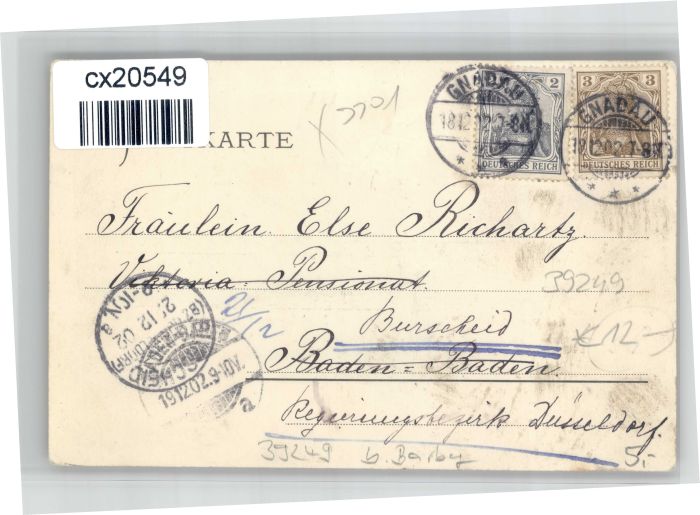 cx20549
KARTE
2201
GNADAU
18.12.02.7-8N.
2
DEUTSCHES REICH
3 3
DEUTSCHES REICH
GNADAU
18.12.02.7-8N.
Fräulein Else Richartz.
Viktoria-Pensionat.
39249
21/12
Burscheid
12-
Baden-Baden.
21.12.02
19.12.02.
a
Regierungsbezirk Düsseldorf.
39249 b. Barby
5,-